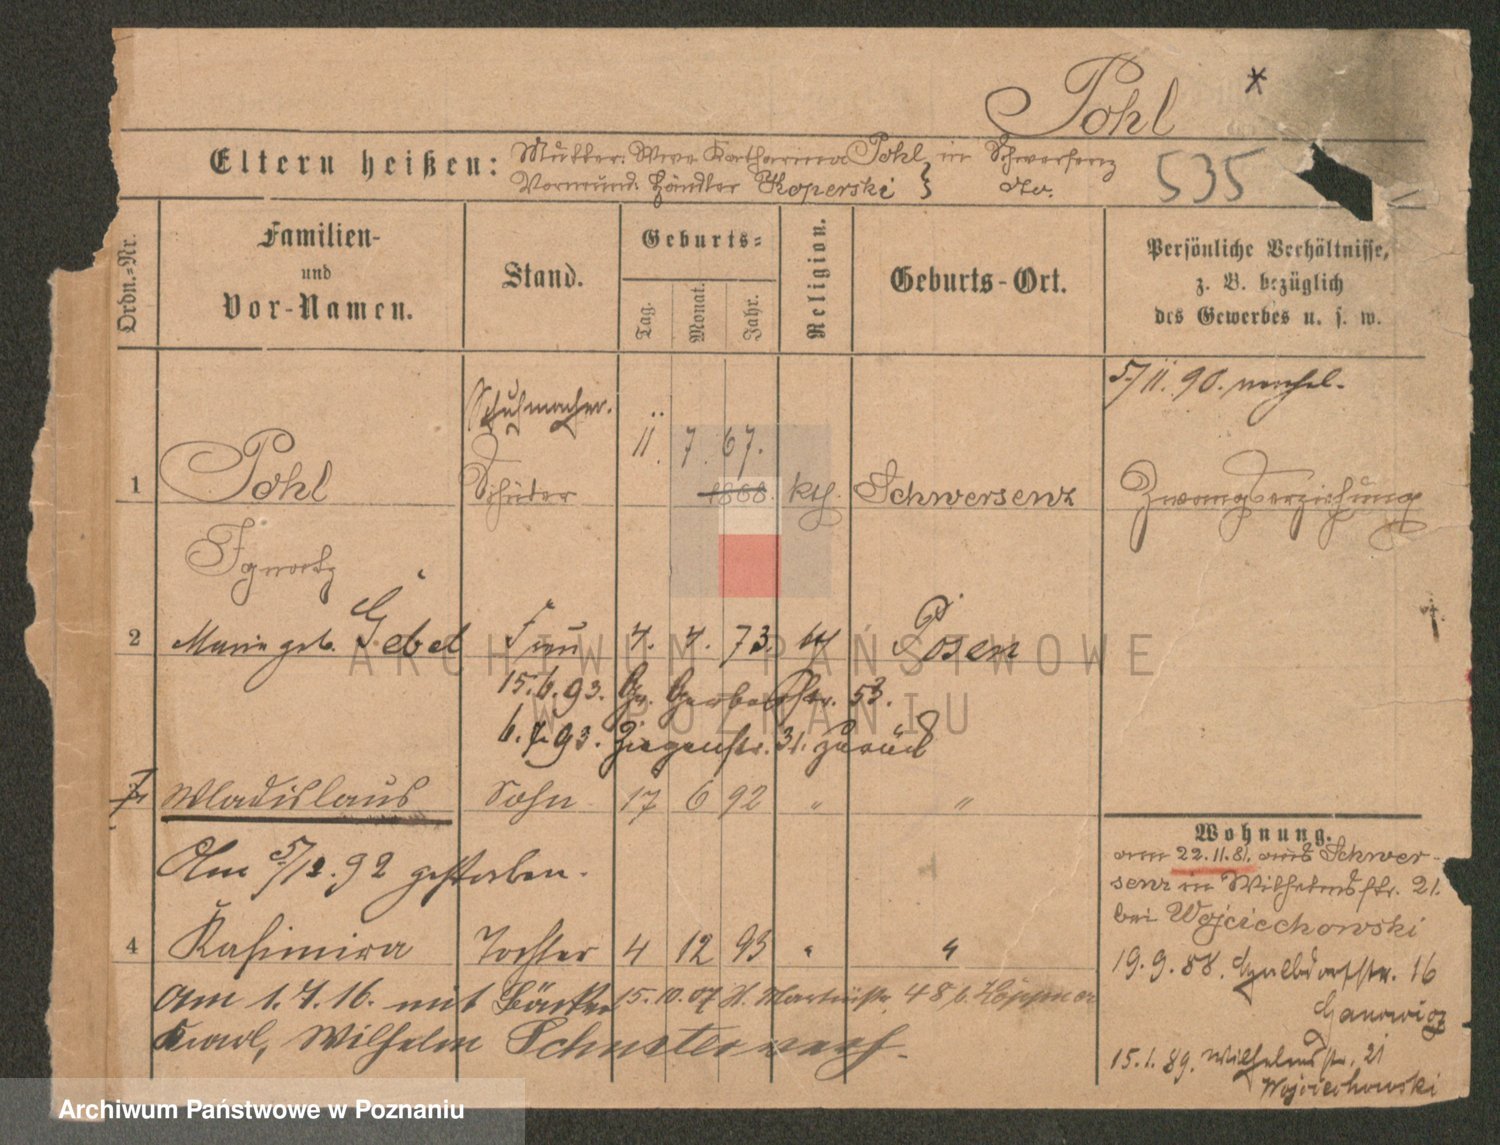 Pohl *
Eltern heißen: Mutter: Wwe Katharina Pohl } in Schwersenz
Vormund: Händler Koperski } do.
535
Ordn.=Nr.
Familien- und Vor-Namen.
Stand.
Geburts=
Tag. Monat. Jahr.
Religion.
Geburts-Ort.
Persönliche Verhältnisse, z. B. bezüglich des Gewerbes u. s. w.
5/11. 90. verehel.
Schuhmacher.
11. 7. 67.
1 Pohl Schüler 1868. kth. Schwersenz Zwangserziehung
Ignatz
2 Marie geb. Gebel Frau 4. 4. 73. kth Posen
15.6.93. Gr. Gerberstr. 53.
6.7.93. Ziegenstr. 31. zurück
3 Wladislaus Sohn 17 6 92 " "
Am 5/12. 92 gestorben.
4 Kasimira Tochter 4 12 93 " "
15.10.07 St. Martinstr. 48 b.
am 1.4.16. mit Bäcker
Karl, Wilhelm Schuster verh.
Wohnung.
am 22.11.81. aus Schwer-
senz in Wilhelmsstr. 21.
bei Wojciechowski
19.9.88. 16
15.1.89. Wilhelmsstr. 21
Wojciechowski
ARCHIWUM PAŃSTWOWE
W POZNANIU
Archiwum Państwowe w Poznaniu